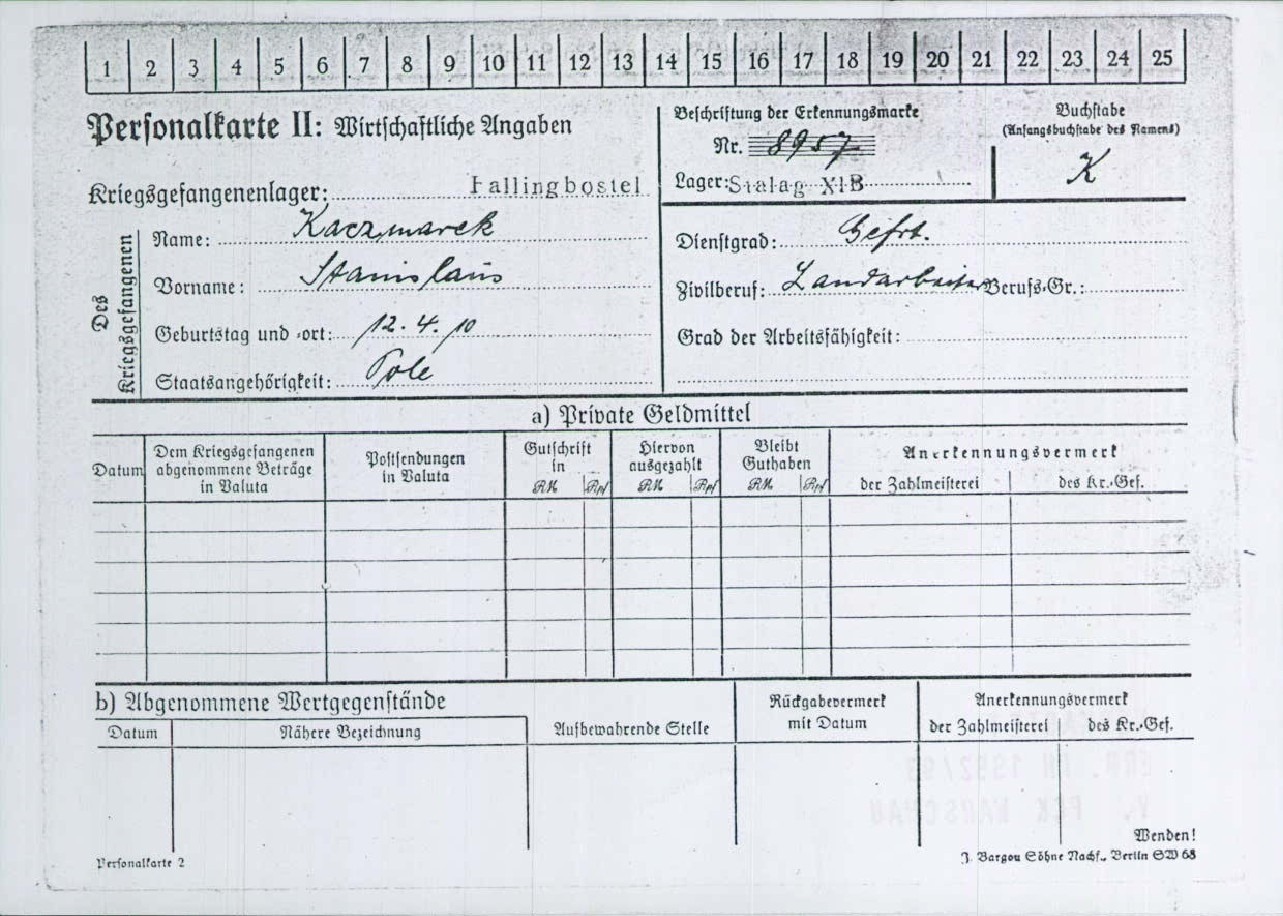 1 2 3 4 5 6 7 8 9 10 11 12 13 14 15 16 17 18 19 20 21 22 23 24 25
Personalkarte II: Wirtschaftliche Angaben
Beschriftung der Erkennungsmarke
Nr. 8957
Lager: Stalag XIB
Buchstabe
(Anfangsbuchstabe des Namens)
K
Kriegsgefangenenlager: Fallingbostel
Des Kriegsgefangenen
Name: Kaczmarek
Vorname: Stanislaus
Geburtstag und -ort: 12.4.10
Staatsangehörigkeit: Pole
Dienstgrad: Gefrt.
Zivilberuf: Landarbeiter Berufs-Gr.:
Grad der Arbeitsfähigkeit:
a) Private Geldmittel
Datum
Dem Kriegsgefangenen
abgenommene Beträge
in Valuta
Postsendungen
in Valuta
Gutschrift
in
RM Rpf
Hiervon
ausgezahlt
RM Rpf
Bleibt
Guthaben
RM Rpf
Anerkennungsvermerk
der Zahlmeisterei des Kr.-Gef.
b) Abgenommene Wertgegenstände
Datum Nähere Bezeichnung
Aufbewahrende Stelle
Rückgabevermerk
mit Datum
Anerkennungsvermerk
der Zahlmeisterei des Kr.-Gef.
ERB. IM 1992/93
V. PCK WARSCHAU
Wenden!
Personalkarte 2
J. Bargou Söhne Nachf., Berlin SW 68